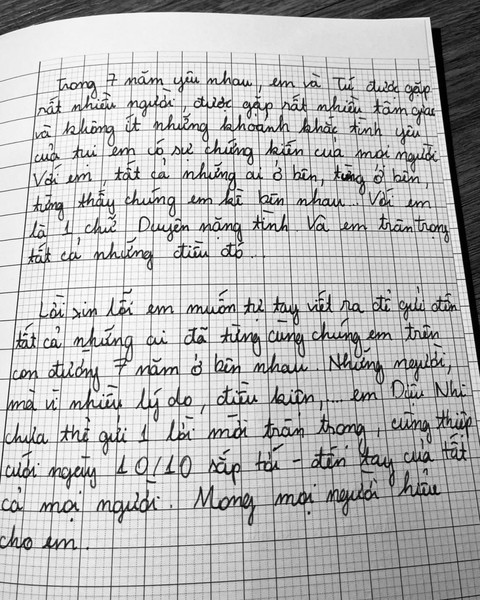 Trong 7 năm yêu nhau, em và Tú được gặp
rất nhiều người, được gặp rất nhiều tâm giao
và không ít những khoảnh khắc tình yêu
của tui em có sự chứng kiến của mọi người
Với em, tất cả những ai ở bên, từng ở bên,
từng thấy chúng em kề bên nhau.. Với em
là 1 chữ Duyên nặng tình. Và em trân trọng
tất cả những điều đó...
Lời xin lỗi em muốn tự tay viết ra để gửi đến
tất cả những ai đã từng cùng chúng em trên
con đường 7 năm ở bên nhau. Những người,
mà vì nhiều lý do, điều kiện,... em Diệu Nhi
chưa thể gửi 1 lời mời trân trọng, cùng thiệp
cưới ngày 10/10 sắp tới - đến tay của tất
cả mọi người. Mong mọi người hiểu
cho em.